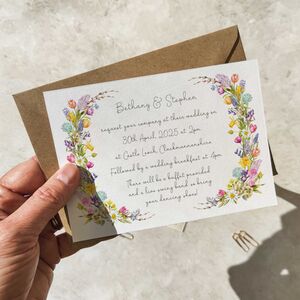 Bethany & Stephen
request your company at their wedding on
30th April, 2025 at 2pm
at Castle Loch, Clackmannanshire
Followed by a wedding breakfast at 4pm
There will be a buffet provided
and a live swing band so bring
your dancing shoes!